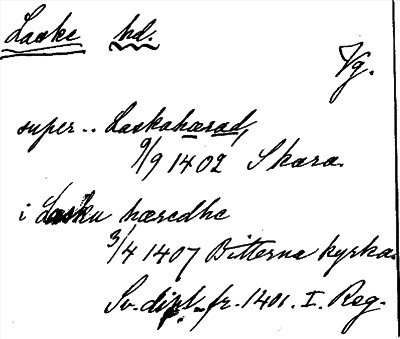 Laske hd.
Vg.
super .. Laskahærad,
9/9 1402 Skara.
i Lasku hæredhe
3/4 1407 Bitterna kyrka.
Sv. dipl. fr. 1401. I. Reg.